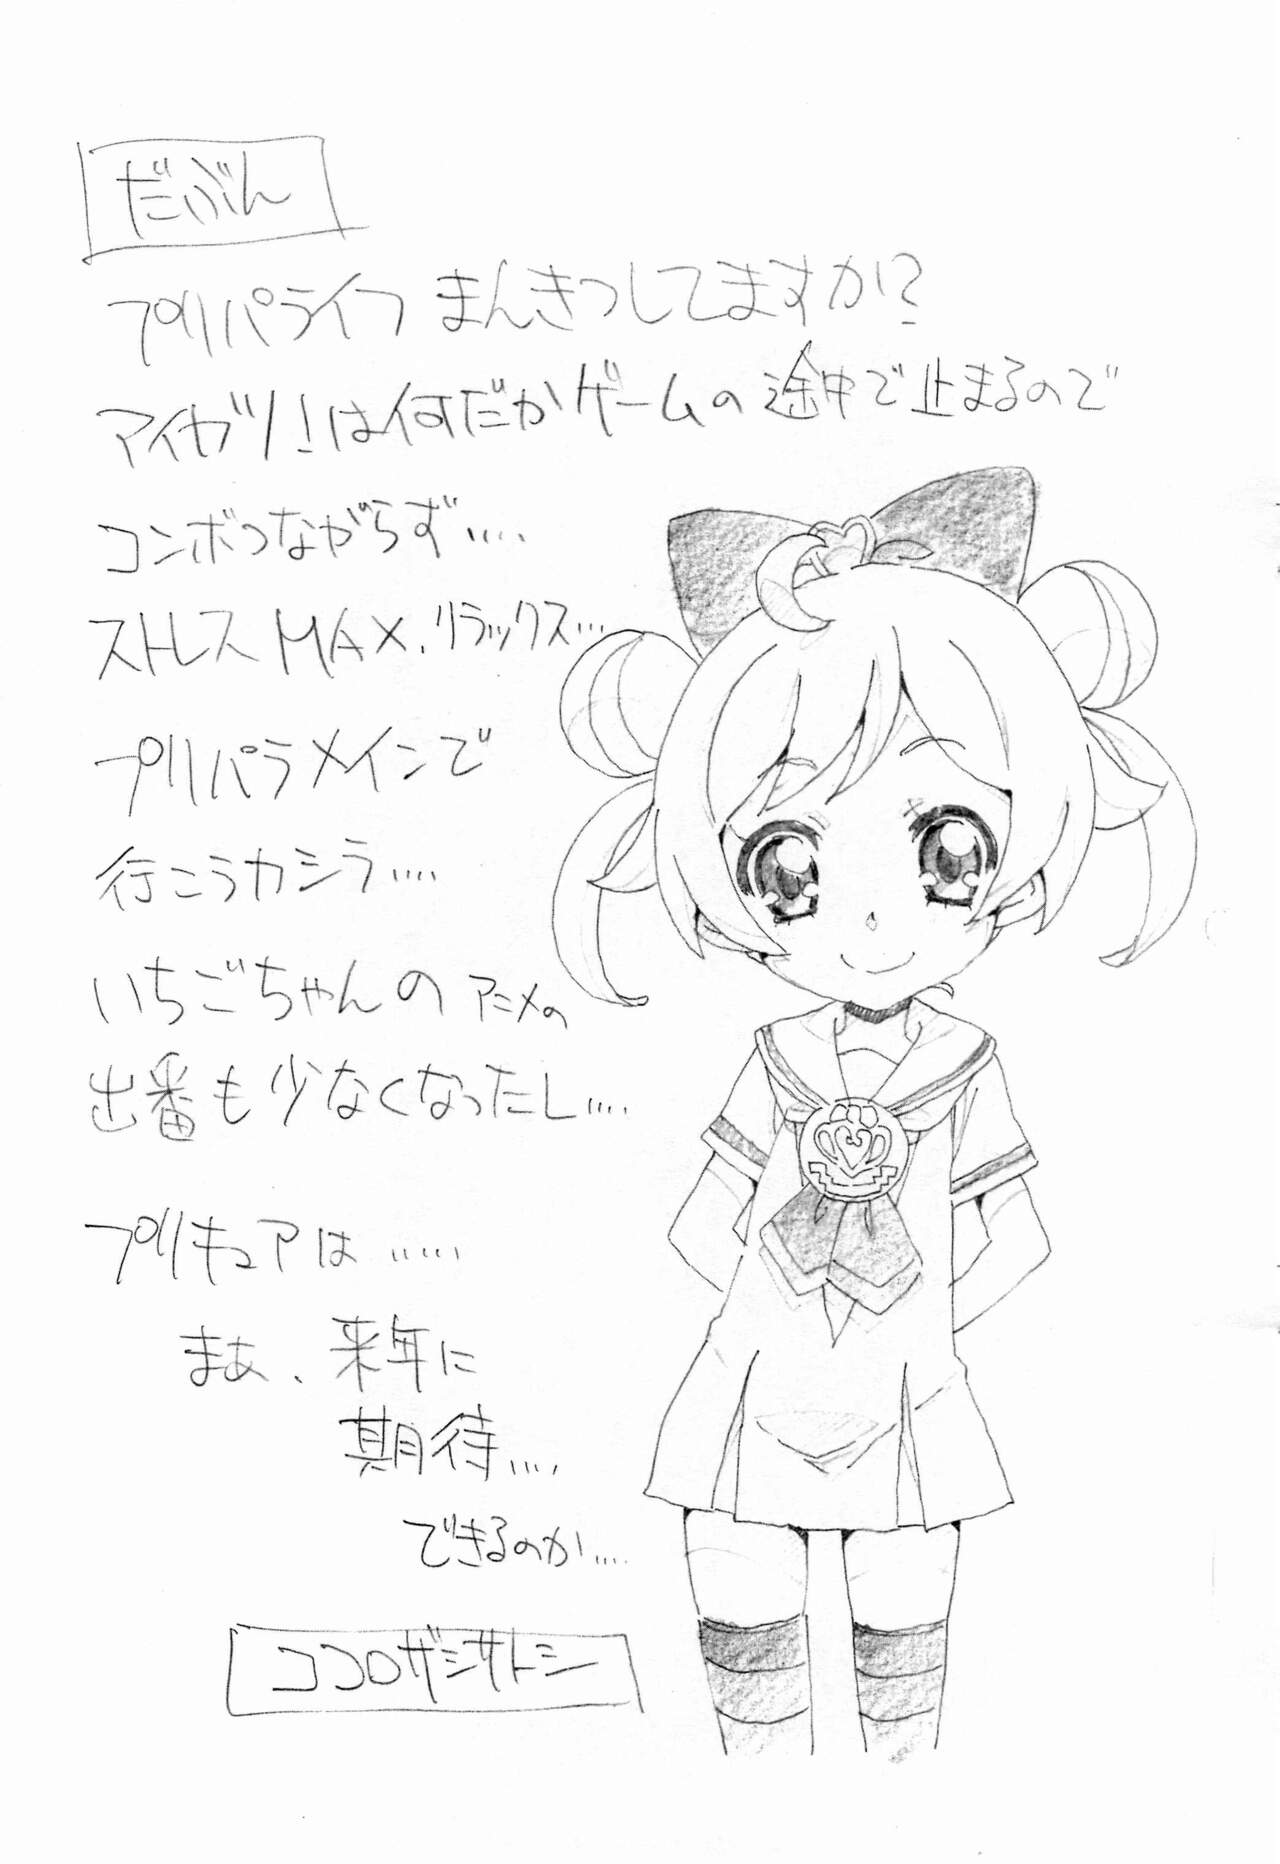 だぶん
プリパライフ まんきつしてますか!?
アイカツ!は何だかゲームの途中で止まるので
コンボつながらず….
ストレスMAX.リラックス…
プリパラメインで
行こうカシラ….
いちごちゃんのアニメの
出番も少なくなったし….
プリキュアは……
まぁ、来年に
期待….
できるのか….
ココロザシサトシ